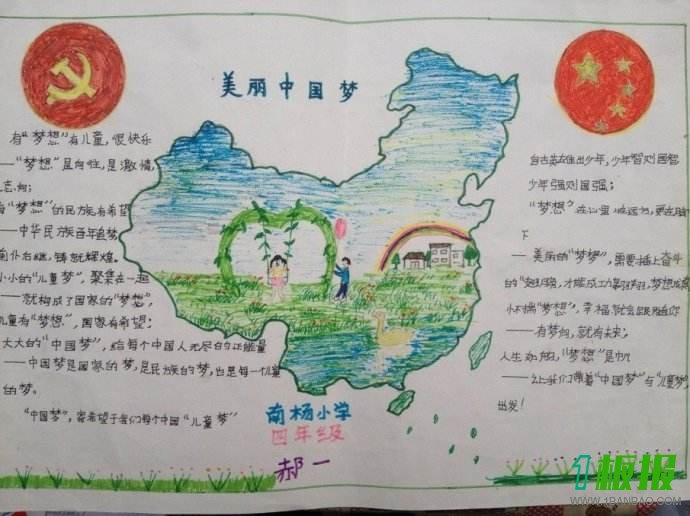 美丽中国梦
有“梦想”有儿童，很快乐
——“梦想”是向往，是激情，
志向；
有“梦想”的民族有希望
——中华民族百年追梦
前仆后继，铸就辉煌。
小小的“儿童梦”，聚集在一起
——就构成了国家的“梦想”，
儿童有“梦想”，国家有希望；
大大的“中国梦”，给每个中国人无尽的正能量
——中国梦是国家的梦，是民族的梦，也是每一个儿童
的梦。
“中国梦”，寄希望于我们每个中国“儿童梦”
自古英雄出少年，少年智则国智
少年强则国强；
“梦想”在心里 在远方，更在脚
下
——美丽的“梦想”，需要插上奋斗
的“翅膀，才能成功翱翔，梦想成真
“梦想”，幸福就会跟随你
——有梦想，就有未来；
人生“梦想”是帆
——让我们带着“中国梦”与“儿童梦”
出发！
南杨小学
四年级
郝一
1板报
WWW.1BANBAO.COM